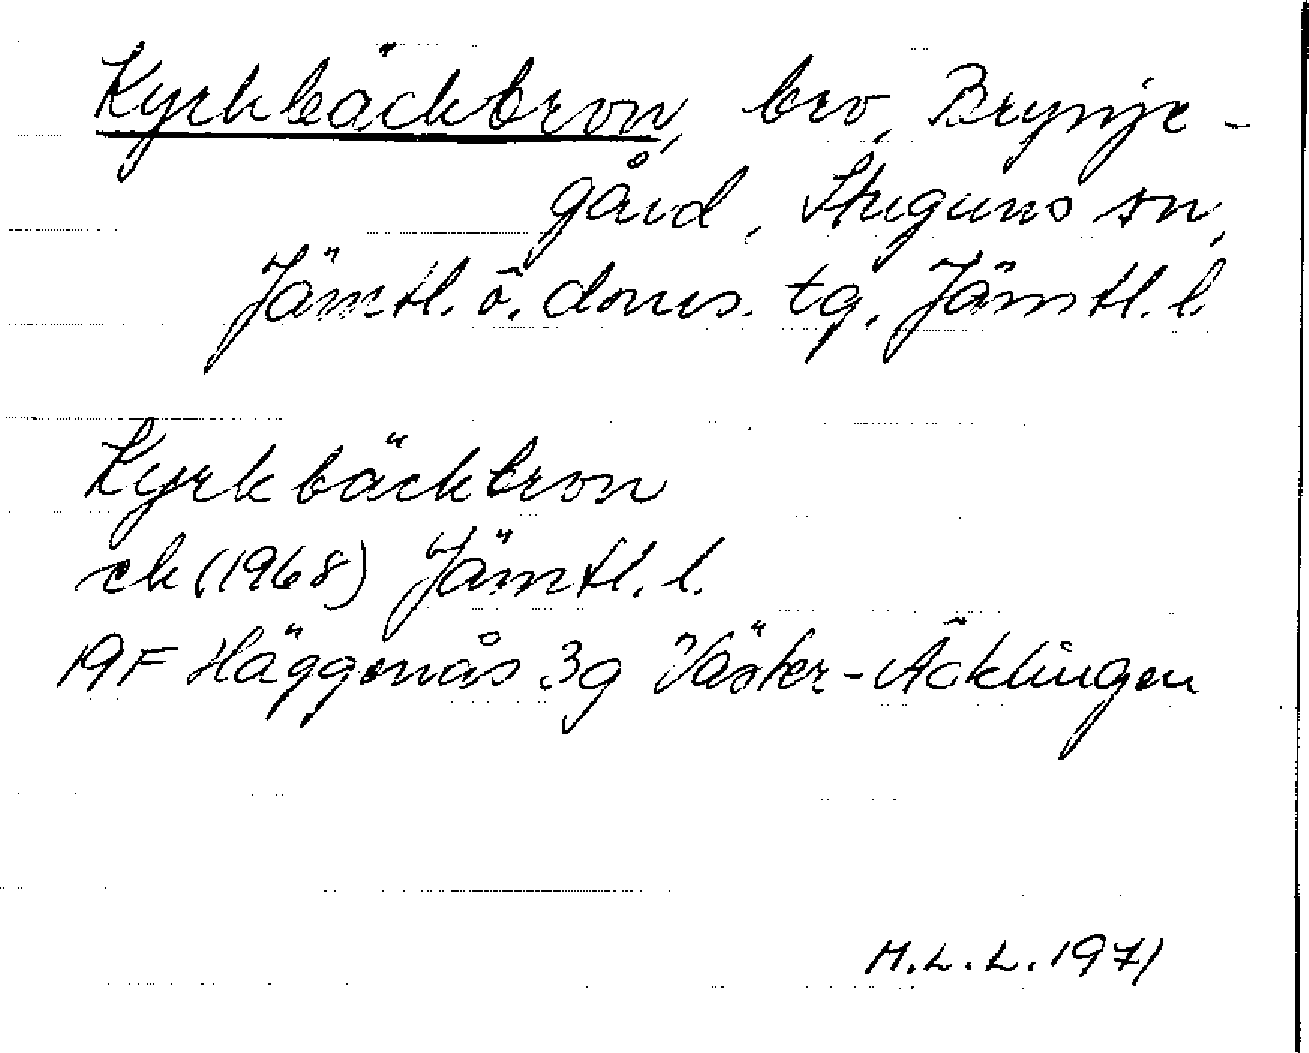 Kyrkbäckbron, bro, Brynje-
gård, Stuguns sn,
Jämtl. ö. doms. tg, Jämtl. l.
Kyrkbäckbron
ek (1968) Jämtl. l.
19F Häggenås 3g Väster-Äcklingen
M.L.L. 1971